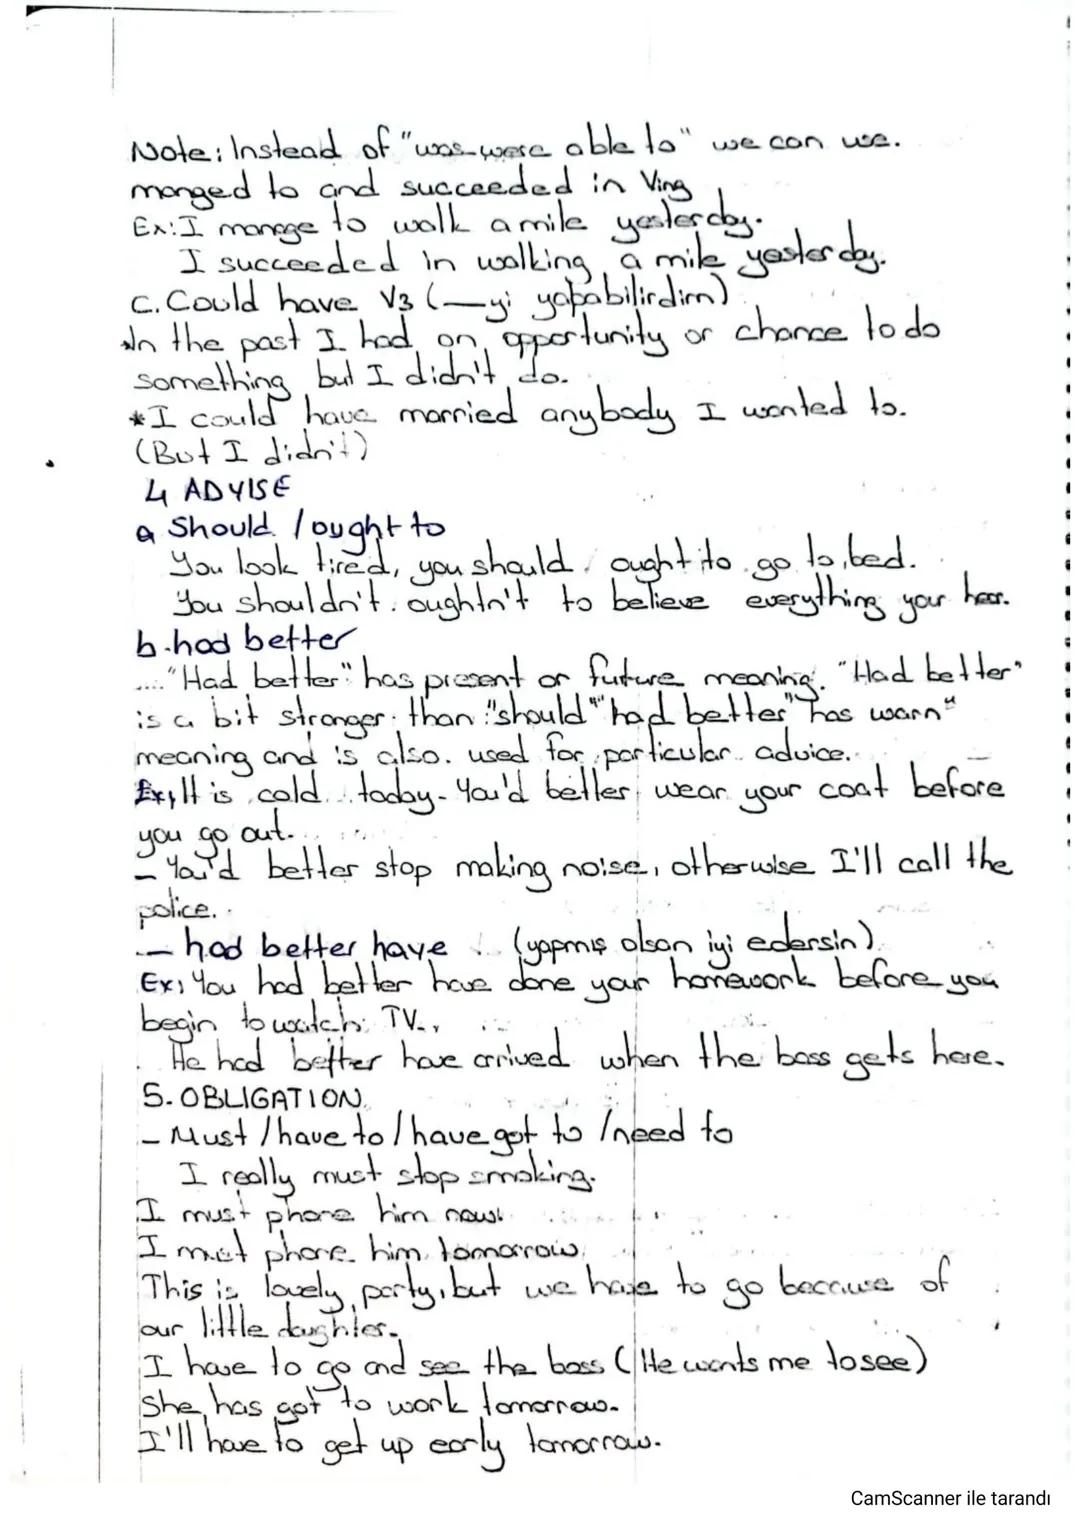 Note: Instead of "was-were able to" we can use.
manged to and succeeded in Ving
Ex: I manege to walk a mile yesterday.
I succeeded in walking a mile yesterday.
C. Could have V3 (—yi yapabilirdim)
*In the past I had an opportunity or chance to do
something but I didn't do.
*I could have married anybody I wanted to.
(But I didn't)
4 ADVISE
a Should / ought to
You look tired, you should. ought to go to bed.
You shouldn't. oughtn't to believe everything your hear.
b. had better
...."Had better" has present or future meaning. "Had better"
is a bit stronger than "should" "had better" has warn"
meaning and is also. used for particular advice.
Ex, It is cold... today. You'd better wear your coat before
you go out.
- You'd better stop making noise, otherwise I'll call the
police.
- had better have (yapmış olsan iyi edersin)
Ex: You had better have done your homework before you
begin to watch TV.
He had better have arrived when the boss gets here.
5. OBLIGATION
- Must / have to / have got to / need to
I really must stop smoking.
I must phone him now.
I must phone him tomorrow.
This is lovely party, but we have to go because of
our little daughter.
I have to go and see the boss (He wants me to see)
She has got to work tomorrow.
I'll have to get up early tomorrow.
CamScanner ile tarandı